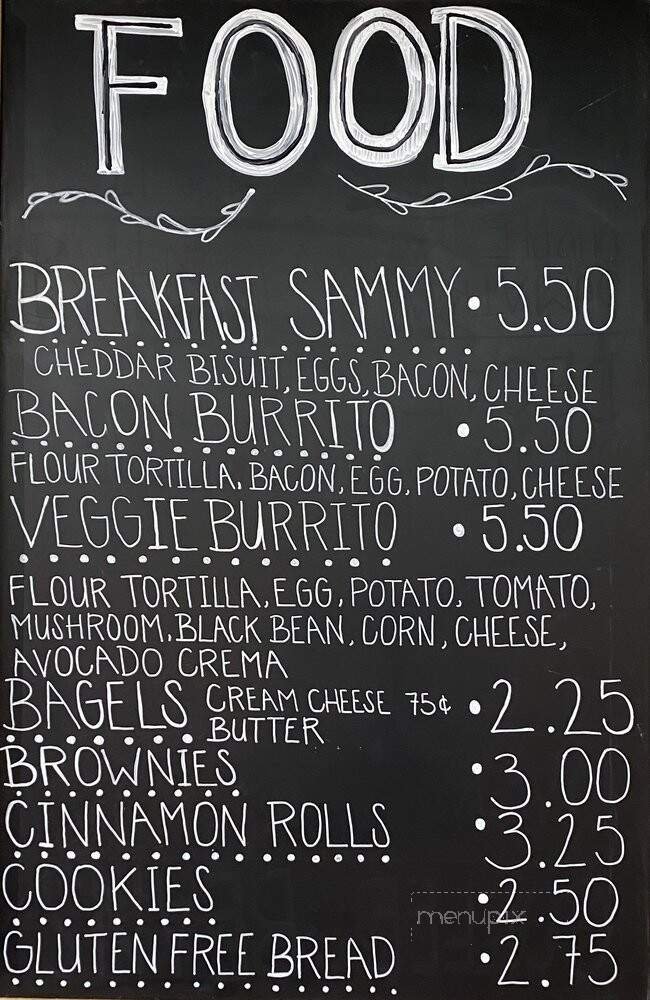 FOOD
BREAKFAST SAMMY • 5.50
CHEDDAR BISUIT, EGGS, BACON, CHEESE
BACON BURRITO • 5.50
FLOUR TORTILLA, BACON, EGG, POTATO, CHEESE
VEGGIE BURRITO • 5.50
FLOUR TORTILLA, EGG, POTATO, TOMATO,
MUSHROOM, BLACK BEAN, CORN, CHEESE,
AVOCADO CREMA
BAGELS CREAM CHEESE 75¢ • 2.25
BUTTER
BROWNIES • 3.00
CINNAMON ROLLS • 3.25
COOKIES • 2.50
menupix
GLUTEN FREE BREAD • 2.75